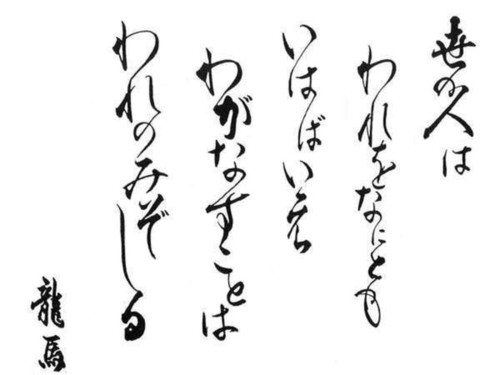 世の人は
われをなにとも
いはばいへ
わがなすことは
われのみぞしる
龍馬